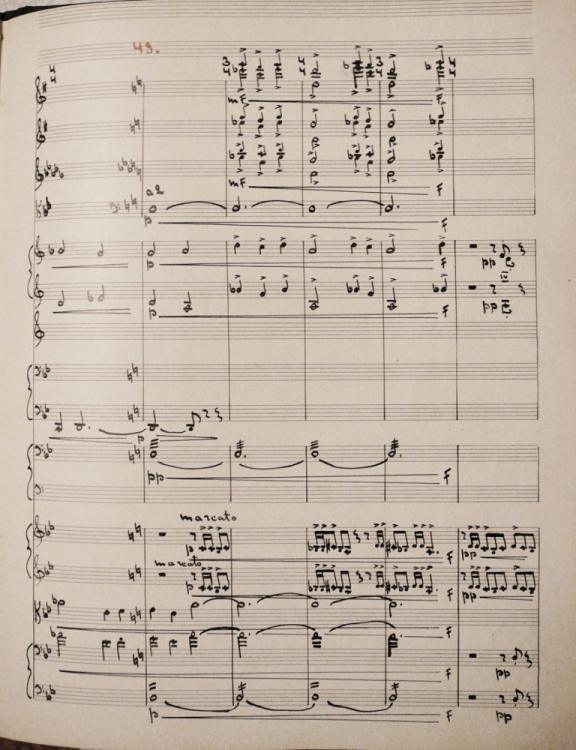 49.
mF
F
mF
F
a2
p
F
p
F
pp
p
F
pp
p
pp
F
marcato
F
pp
marcato
F
pp
F
F
pp
p
F
pp